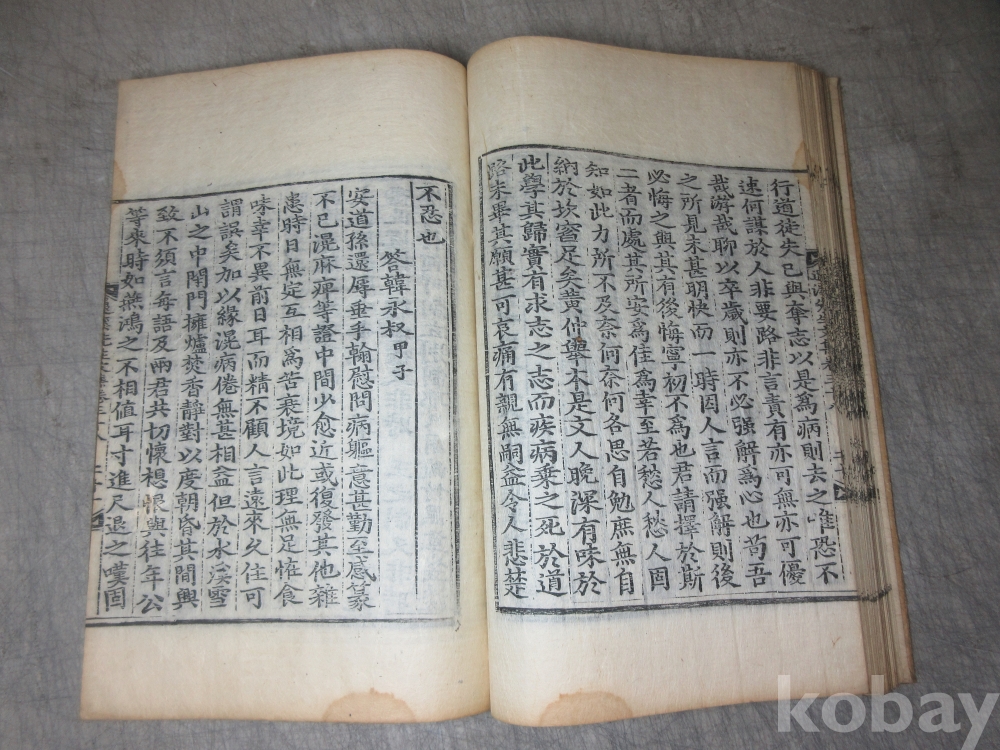 行道徒失己與奪志以是為病則去之唯恐不
速何謀於人非要路非言責有亦可無亦可優
哉游哉聊以卒歲則亦不必强解為心也苟吾
之所見未甚明快而一時因人言而强解則後
必悔之與其有後悔寧初不為也君請擇於斯
二者而處其所安為佳為幸至若愁人愁人固
知如此力所不及奈何奈何各思自勉庶無自
納於坎窞足矣黄仲舉本是文人晚深有味於
此學其歸實有求志之志而疾病乘之死於道
路未畢其願甚可哀痛有親無嗣益令人悲楚
不忍也
答韓永叔 甲子
安道孫還辱垂手翰慰問病軀意甚勤至感篆
不已滉麻痺等證中間少愈近或復發其他雜
患時日無定互相為苦衰境如此理無足怪食
味幸不異前日耳而精不顧人言遠來久住可
謂誤矣加以緣滉病倦無甚相益但於水溪雪
山之中閉門擁爐焚香靜對以度朝昏其間興
致不須言每語及兩君共切懷想恨與往年公
等來時如燕鴻之不相值耳寸進尺退之嘆固
kobay